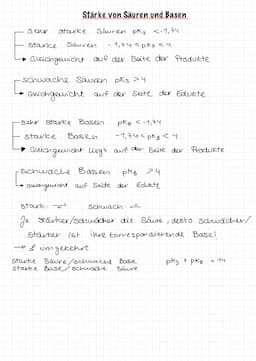 Stärke von Säuren und Basen
- sehr starke Säuren pKs < -1,74
- starke Säuren -1,74 < pKs < 4
↳ Gleichgewicht auf der Seite der Produkte
- schwache Säuren pKs > 4
↳ Gleichgewicht auf der Seite der Edukte
- sehr starke Basen pKB < -1,74
- starke Basen -1,74 < pKB < 4
↳ Gleichgewicht liegt auf der Seite der Produkte
- schwache Basen pKB > 4
↳ auf Seite der Edukte
stark: → schwach: ⇌
Je stärker/schwächer die Säure, desto schwächer/
stärker ist ihre korrespondierende Base!
→ & umgekehrt
starke Säure/schwache Base pKs + pKB = 14
starke Base/schwache Säure